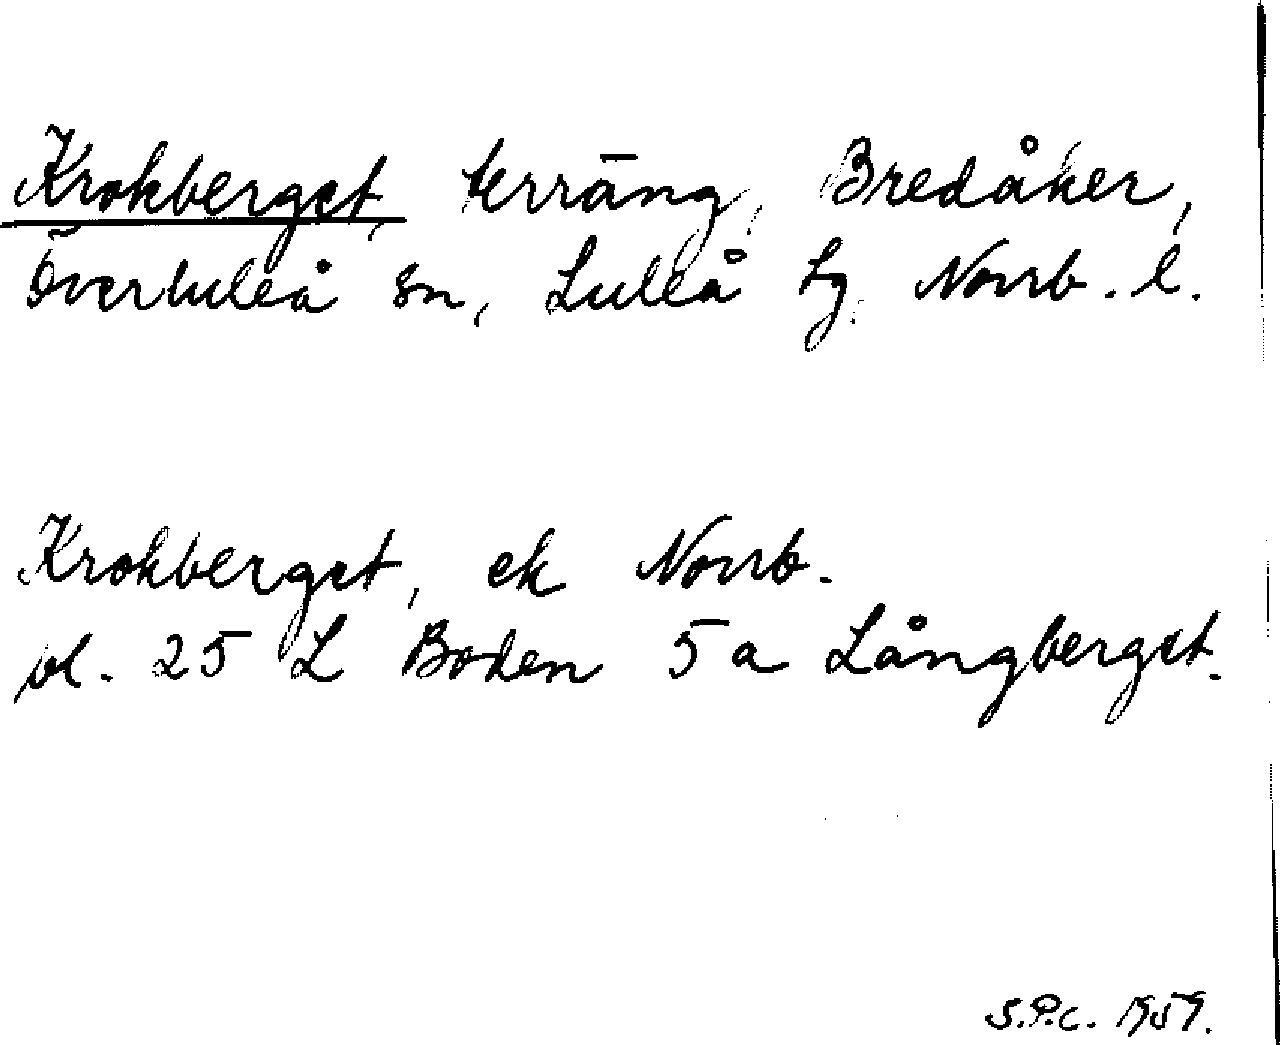 Krokberget, terräng, Bredåker,
Överluleå sn, Luleå tg. Norrb. l.
Krokberget, ek Norrb.
bl. 25 L Boden 5 a Långberget.
S.P.C. 1959.